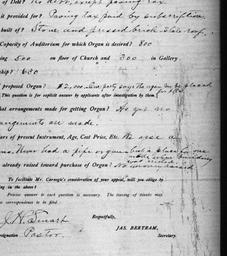 of Debt? No debt, except paving tax.
it provided for? Paving tax paid by subscription
built of? Stone and pressed brick. Slate roof.
Capacity of Auditorium for which Organ is desired? 800
ing 500 on floor of Church and 300 in Gallery
ship? 630
proposed Organ? $2,000.
This question is for explicit answer by applicants after investigation by them
hat arrangements made for getting Organ? No
angements are made.
ars of present Instrument, Age, Cost Price, Etc. We use a
no. Never had a pipe organ but a place for one
made when building
was erected
already raised toward purchase of Organ?
To facilitate Mr. Carnegie's consideration of your appeal, will you oblige by
ing in the above?
Precise answer to each question is necessary. The leaving of blanks may
o correspondence is to filed.
Respectfully,
JAS. BERTRAM,
Secretary.
Pastor.